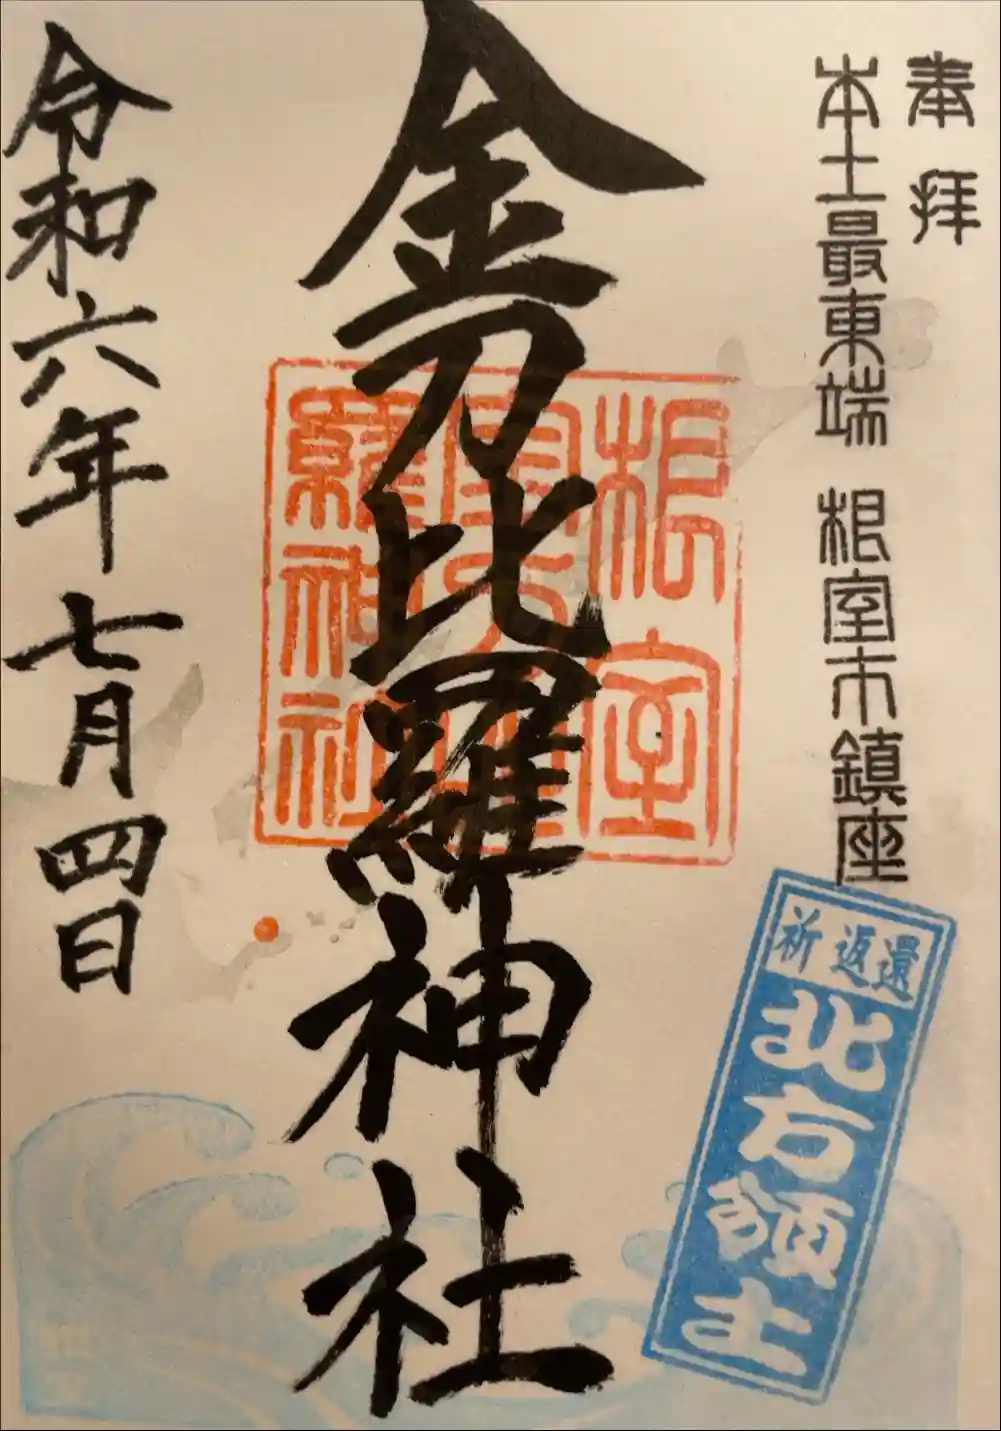 奉拝
本土最東端 根室市鎮座
金刀比羅神社
令和六年 七月四日
根室
羅神社
祈 返還
北方領土